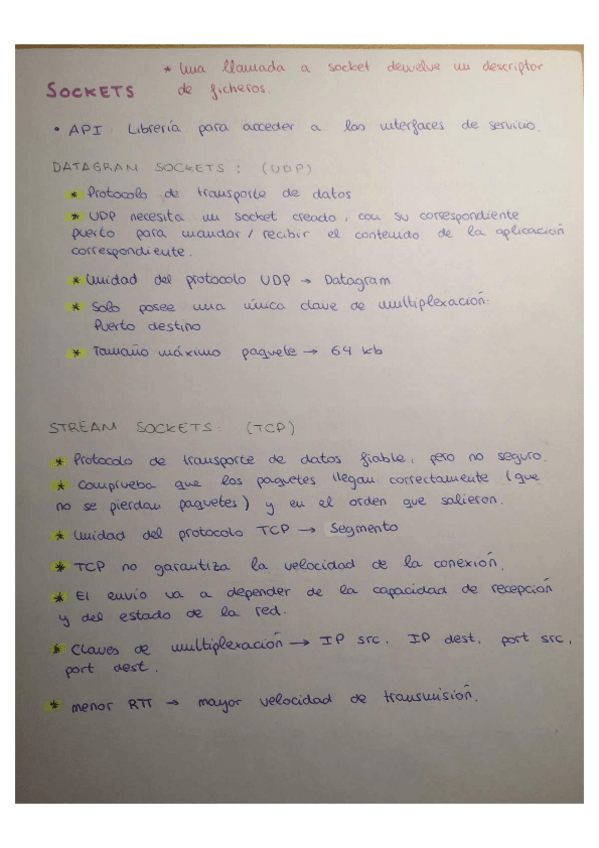 * Una llamada a socket devuelve un descriptor
SOCKETS de ficheros.
• API: Librería para acceder a los interfaces de servicio.
DATAGRAM SOCKETS: (UDP)
* Protocolo de transporte de datos
* UDP necesita un socket creado, con su correspondiente
puerto para mandar/recibir el contenido de la aplicación
correspondiente.
* Unidad del protocolo UDP → Datagram
* Solo posee una única clave de multiplexación:
Puerto destino
* Tamaño máximo paquete → 64 kb
STREAM SOCKETS: (TCP)
* Protocolo de transporte de datos fiable, pero no seguro.
* Comprueba que los paquetes llegan correctamente (que
no se pierdan paquetes) y en el orden que salieron.
* Unidad del protocolo TCP → Segmento
* TCP no garantiza la velocidad de la conexión.
* El envío va a depender de la capacidad de recepción
y del estado de la red.
* Claves de multiplexación → IP src, IP dest, port src,
port dest.
* menor RTT → mayor velocidad de transmisión.